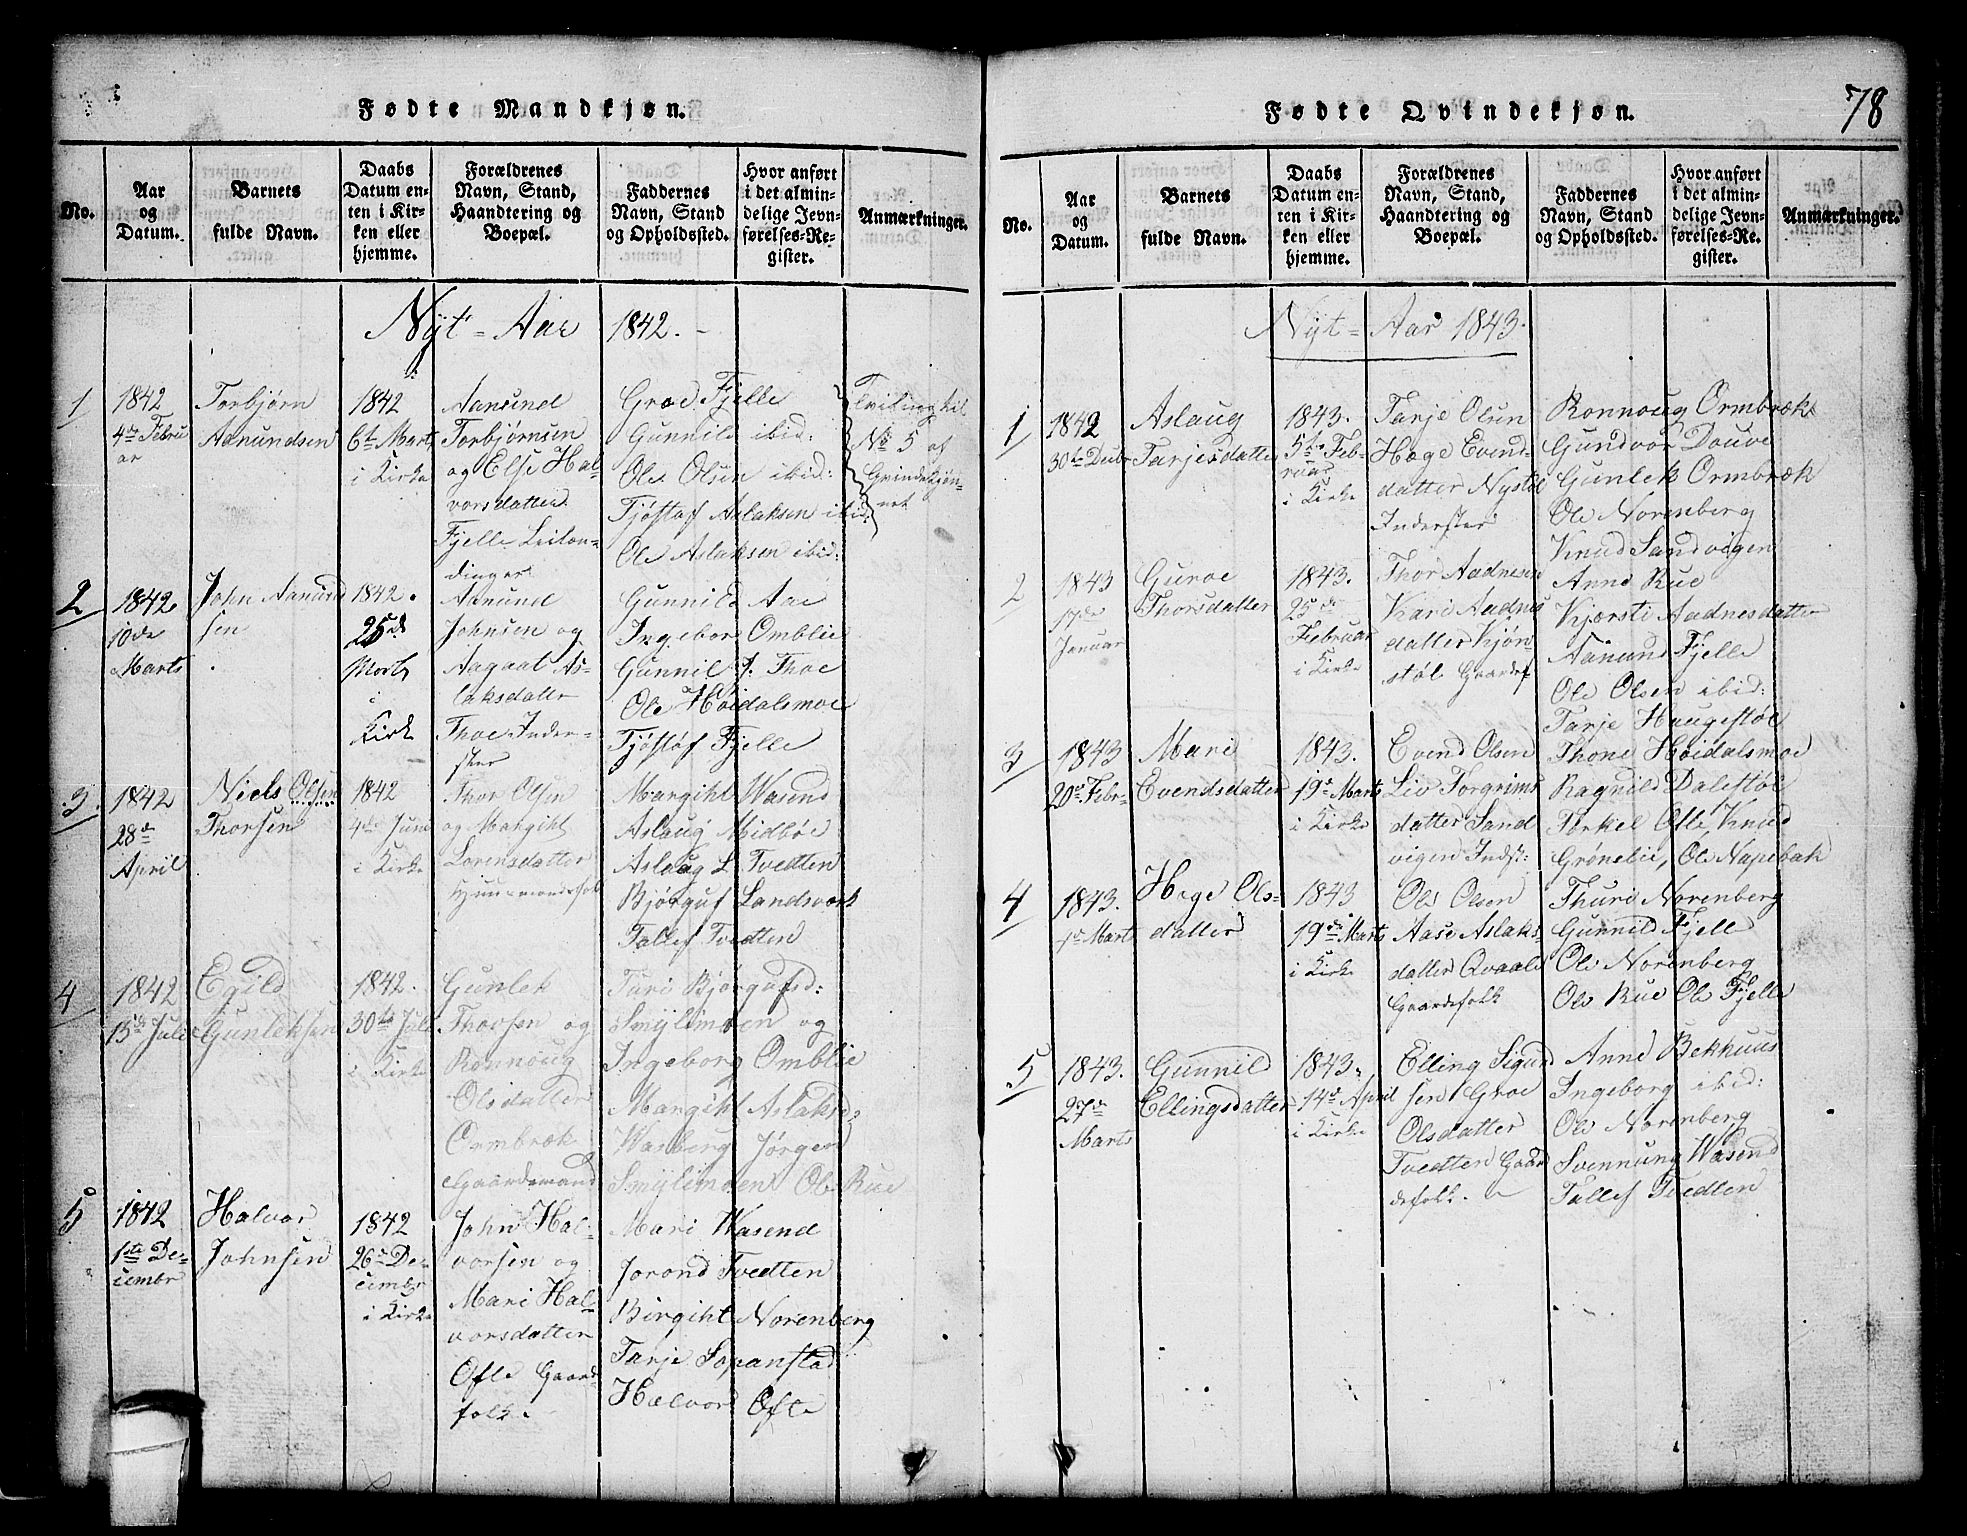 Fødte Mandkjøn.
No.
Aar
og
Datum.
Barnets
fulde Navn.
Daabs
Datum en-
ten i Kir-
ken eller
hjemme.
Forældrenes
Navn, Stand,
Haandtering og
Boepæl.
Faddernes
Navn, Stand
og Opholdssted.
Hvor anført
i det almin-
delige Jevn-
førelses-Re-
gister.
Anmærkninger.
Nyt-Aar 1842.-
1
1842
4de Febru
ar
Torbjørn
Aanundsen
1842
6te Marts
i Kirke
Aanund
Torbjørnsen
og Else Hal-
vorsdatter
Fjelle Leilæn-
dinger
Groe Fjelle
Gunnild ibid:
Ole Olsen ibid:
Tjøstaf Aslaksen ibid:
Ole Aslaksen ibid:
Tvilling til
No 5 af
Qvindekjøn-
net
2
1842.
10de
Marts
John Aanund
sen
1842.
25de
Marts
i
Kirke
Aanund
Johnsen og
Aagaat As-
laksdatter
Thoe Inder-
ster
Gunnild Aae
Ingebor Omblie
Gunnil A. Thoe
Ole Høidalsmoe
Tjøstøf Fjelle
3
1842
28de
April
Niels Olsen
Thorsen
1842
4de Juni
i Kirke
Thor Olsen
og Margiht
Lorensdatter
Huusmandsfolk
Margiht Wasend
Aslaug Midbøe
Aslaug L. Tvedten
Bjørguf Landsværk
Tallef Tvedten
4
1842
15de Juli
Egild
Gunleksen
1842.
30te Juli
i Kirke
Gunlek
Thorsen og
Ronnoug
Olsdatter
Ormbræk
Gaardemand
Turi Bjørgufsd:
Smylimoen og
Ingeborg Omblie
Margiht Aslaksd:
Wasberg Jørgen
Smylimoen Ole Rue
5
1842
1ste De-
cember
Halvor
Johnsen
1842
26de De-
cember
i Kirke
John Hal-
vorsen og
Mari Hal-
vorsdatter
Ofte Gaard
folk.
Mari Wasend
Jorond Tvedten
Birgiht Norenberg
Tarje Sopanstad
Halvor Ofte
Fødte Qvindekjøn.
78
No.
Aar
og
Datum.
Barnets
fulde Navn.
Daabs
Datum en-
ten i Kir-
ken eller
hjemme.
Forældrenes
Navn, Stand,
Haandtering og
Boepæl.
Faddernes
Navn, Stand
og Opholdssted.
Hvor anført
i det almin-
delige Jevn-
førelses-Re-
gister.
Anmærkninger.
Nyt-Aar 1843.
1
1842
30te Decbr
Aslaug
Tarjesdatter
1843.
5te Feb-
ruar
i Kirke
Tarje Olsen
Hæge Evend-
datter Nystøl
Inderster
Ronnoug Ormbræk
Gundvor Douve
Gunlek Ormbræk
Ole Norenberg
Knud Sandvigen
2
1843
17de
Januar
Guroe
Thorsdatter
1843.
25de
Februar
i Kirke
Thor Aadnesen
Kari Aadnes
datter Kjøn-
støl Gaardef
Anne Rue
Kjærsti Aadnesdatter
Aanund Fjelle
Ole Olsen ibid:
Tarje Haugestøl
3
1843
20de Febr.
Mari
Evendsdatter
1843.
19de Marts
i Kirke
Evend Olsen
Liv Torgrims
datter Sand
vigen Indst:
Thone Høidalsmoe
Ragnild Dalestøl
Torkel Ofte, Knud
Grønelie, Ole Napebak
4
1843.
1ste Marts
Hege Ols-
datter
1843
19de Marts
i Kirke
Ole Olsen
Aase Aslaks-
datter Qvaale
Gaardefolk
Thuri Norenberg
Gunnild Fjelle
Ole Norenberg
Ole Rue Ole Fjelle
5
1843.
27de
Marts
Gunnil
Ellingsdatter
1843.
14de April
i Kirke
Elling Sigurd
sen Groe
Olsdatter
Tvedten Gaar
defolk.
Anne Bekhuus
Ingeborg ibid:
Ole Norenberg
Svennung Wasend
Tallef Tvedten